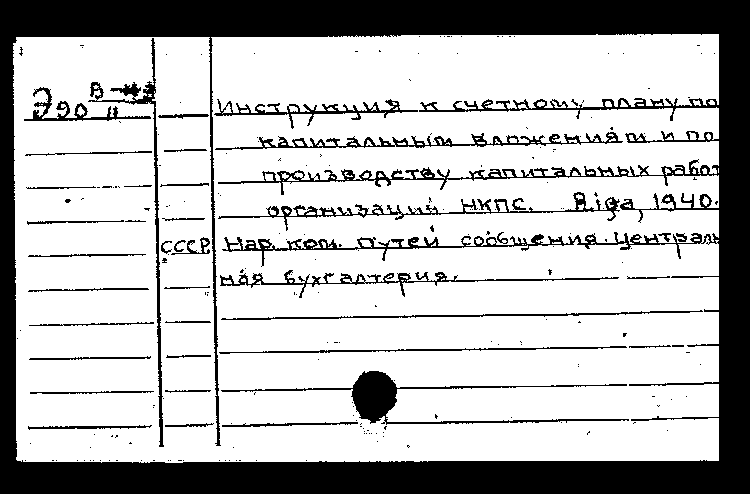 Э90
Инструкция к счетному плану по
капитальным вложениям и по
производству капитальных работ
организаций НКПС. Riga, 1940.
СССР. Нар. ком. путей сообщения. Централь-
ная бухгалтерия.